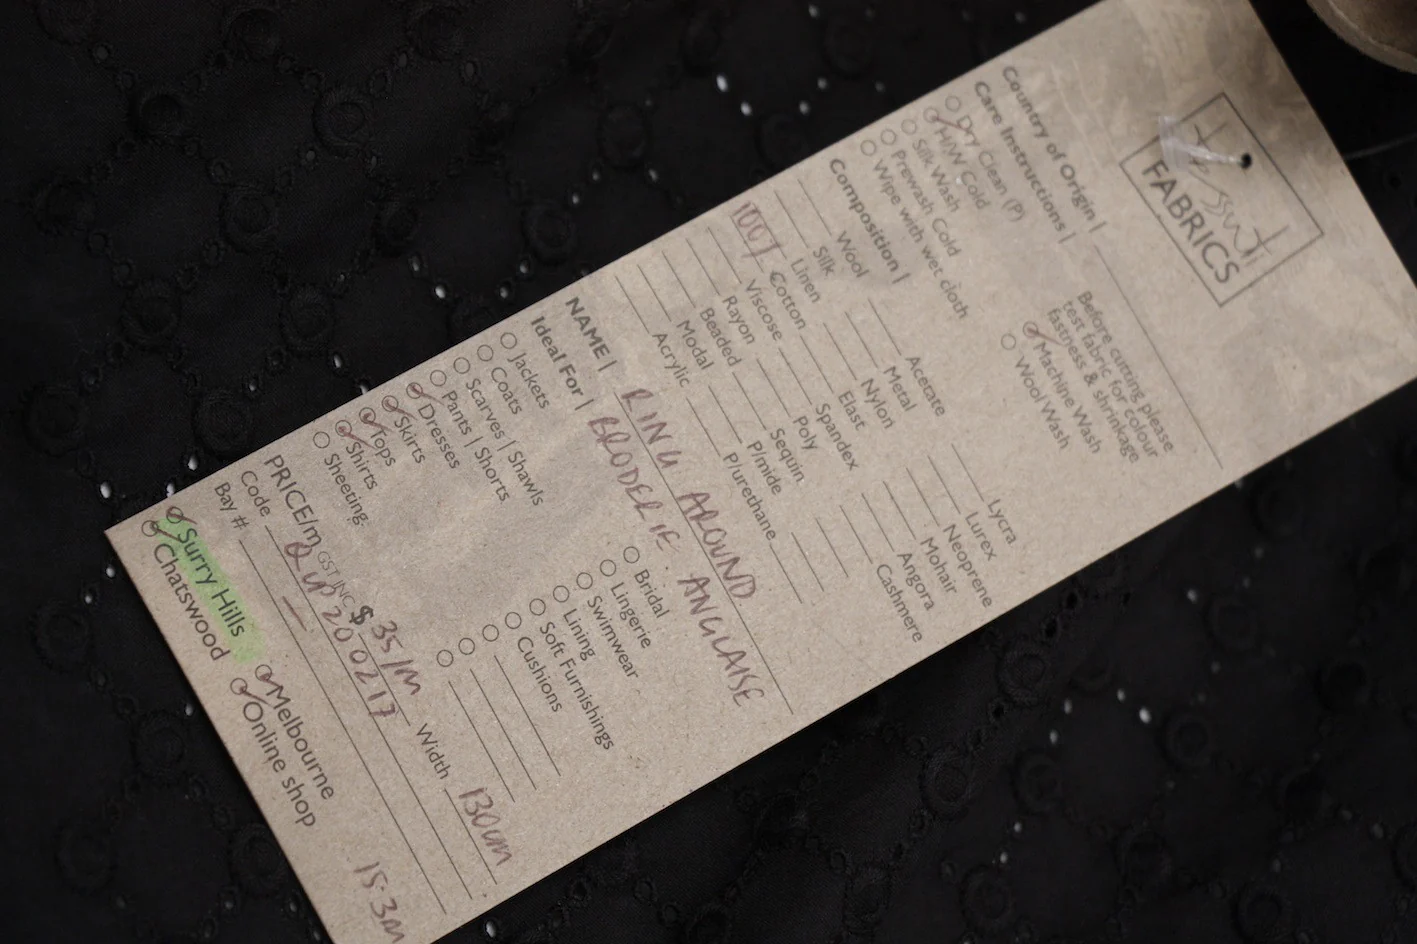 Tessuti
FABRICS
Country of Origin |
Care Instructions |
Before cutting please
test fabric for colour
fastness & shrinkage
Dry Clean (P)
H/W Cold
Silk Wash
Prewash Cold
Wipe with wet cloth
Machine Wash
Wool Wash
Composition |
Wool
Silk
Linen
100% Cotton
Viscose
Rayon
Beaded
Modal
Acrylic
Acetate
Metal
Nylon
Elast
Spandex
Poly
Sequin
P/mide
P/urethane
Lycra
Lurex
Neoprene
Mohair
Angora
Cashmere
NAME | RING AROUND
BRODERIE ANGLAISE
Ideal For |
Jackets
Coats
Scarves | Shawls
Pants | Shorts
Dresses
Skirts
Tops
Shirts
Sheeting
Bridal
Lingerie
Swimwear
Lining
Soft Furnishings
Cushions
PRICE/m GST INC $ 35/M Width 130cm
Code
Bay # —
Surry Hills
Chatswood
Melbourne
Online shop
15.3m